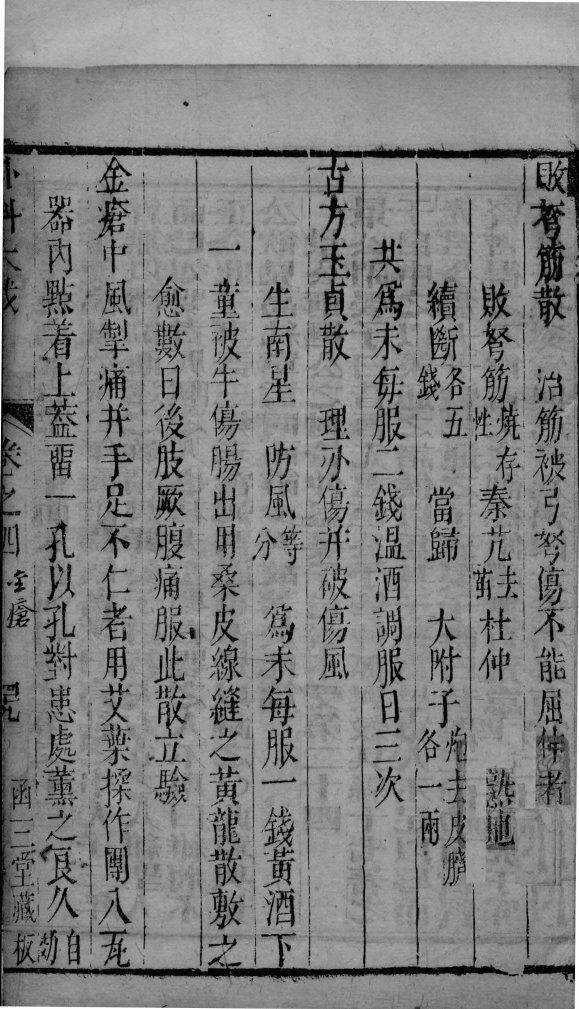 敗弩筋散　治筋被弓弩傷不能屈伸者
敗弩筋燒存性秦艽去苗杜仲　熟地
續斷各五錢　當歸　大附子炮去皮臍各一兩
共爲末每服二錢溫酒調服日三次
古方玉眞散　理刀傷并破傷風
生南星　防風等分　爲末每服一錢黃酒下
一童被牛傷腸出用桑皮線縫之黃龍散敷之
愈數日後肢厥腹痛服此散立驗
金瘡中風掣痛并手足不仁者用艾葉揉作團入瓦
器內點着上蓋留一孔以孔對患處薰之良久自効
外科大成
卷之四
金瘡
函三堂藏板